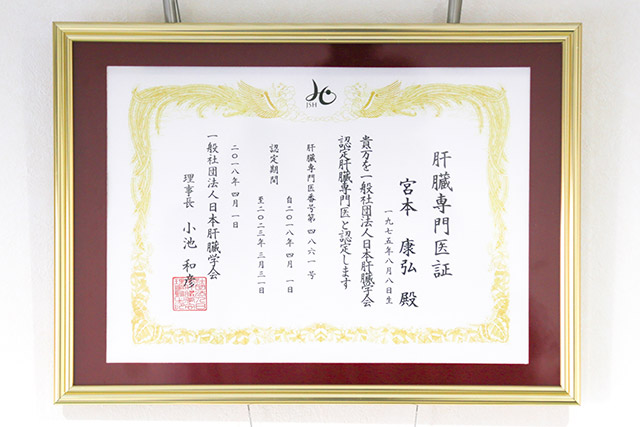 JSH
肝臓専門医証
宮本 康弘 殿
一九七五年八月八日生
貴方を一般社団法人日本肝臓学会
認定肝臓専門医と認定します
肝臓専門医番号第四八六一号
認定期間
自二〇一八年四月一日
至二〇二三年三月三一日
二〇一八年四月一日
一般社団法人日本肝臓学会
理事長 小池 和彦